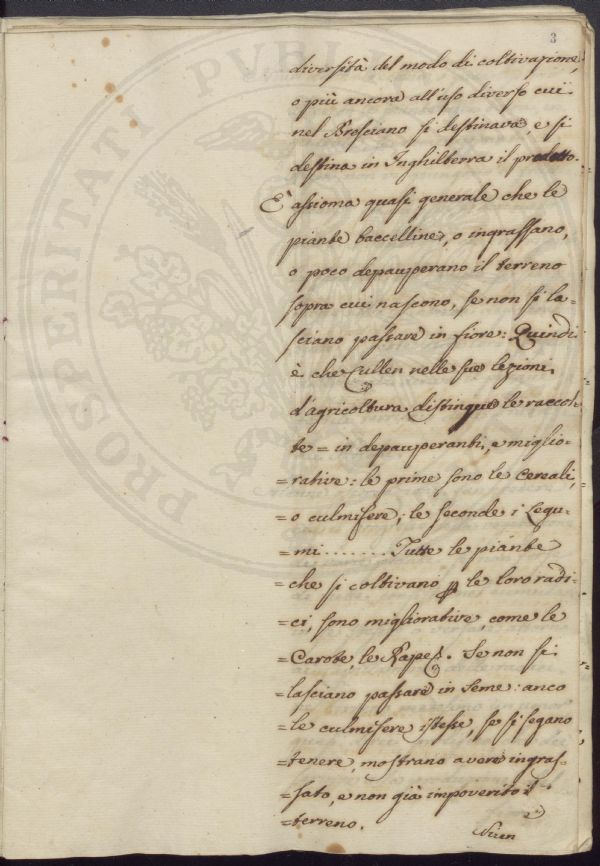 3
diversità del modo di coltivazione,
o più ancora all'uso diverso cui
nel Bresciano si destinava, e si
destina in Inghilterra il prodotto.
E' assioma quasi generale che le
piante baccelline, o ingrassano,
o poco depauperano il terreno
sopra cui nascono, se non si la=
sciano passare in fiore: Quindi
è che Cullen nelle sue lezioni
d'agricoltura distingue le raccol=
te = in depauperanti, e miglio=
=rative: le prime sono le cereali,
=o culmifere; le seconde i legu=
=mi ....... Tutte le piante
=che si coltivano p le loro radi=
=ci, sono migliorative, come le
=Carote, le Rape. Se non si
=lasciano passare in seme: anco
=le culmifere istesse, se si segano
=tenere, mostrano avere ingras=
=sato, e non già impoverito il
=terreno.
PROSPERITATI PUBL